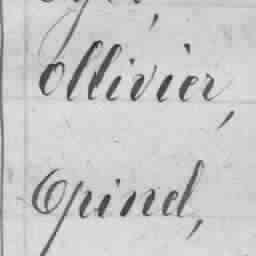 Ollivier,
Opinel,